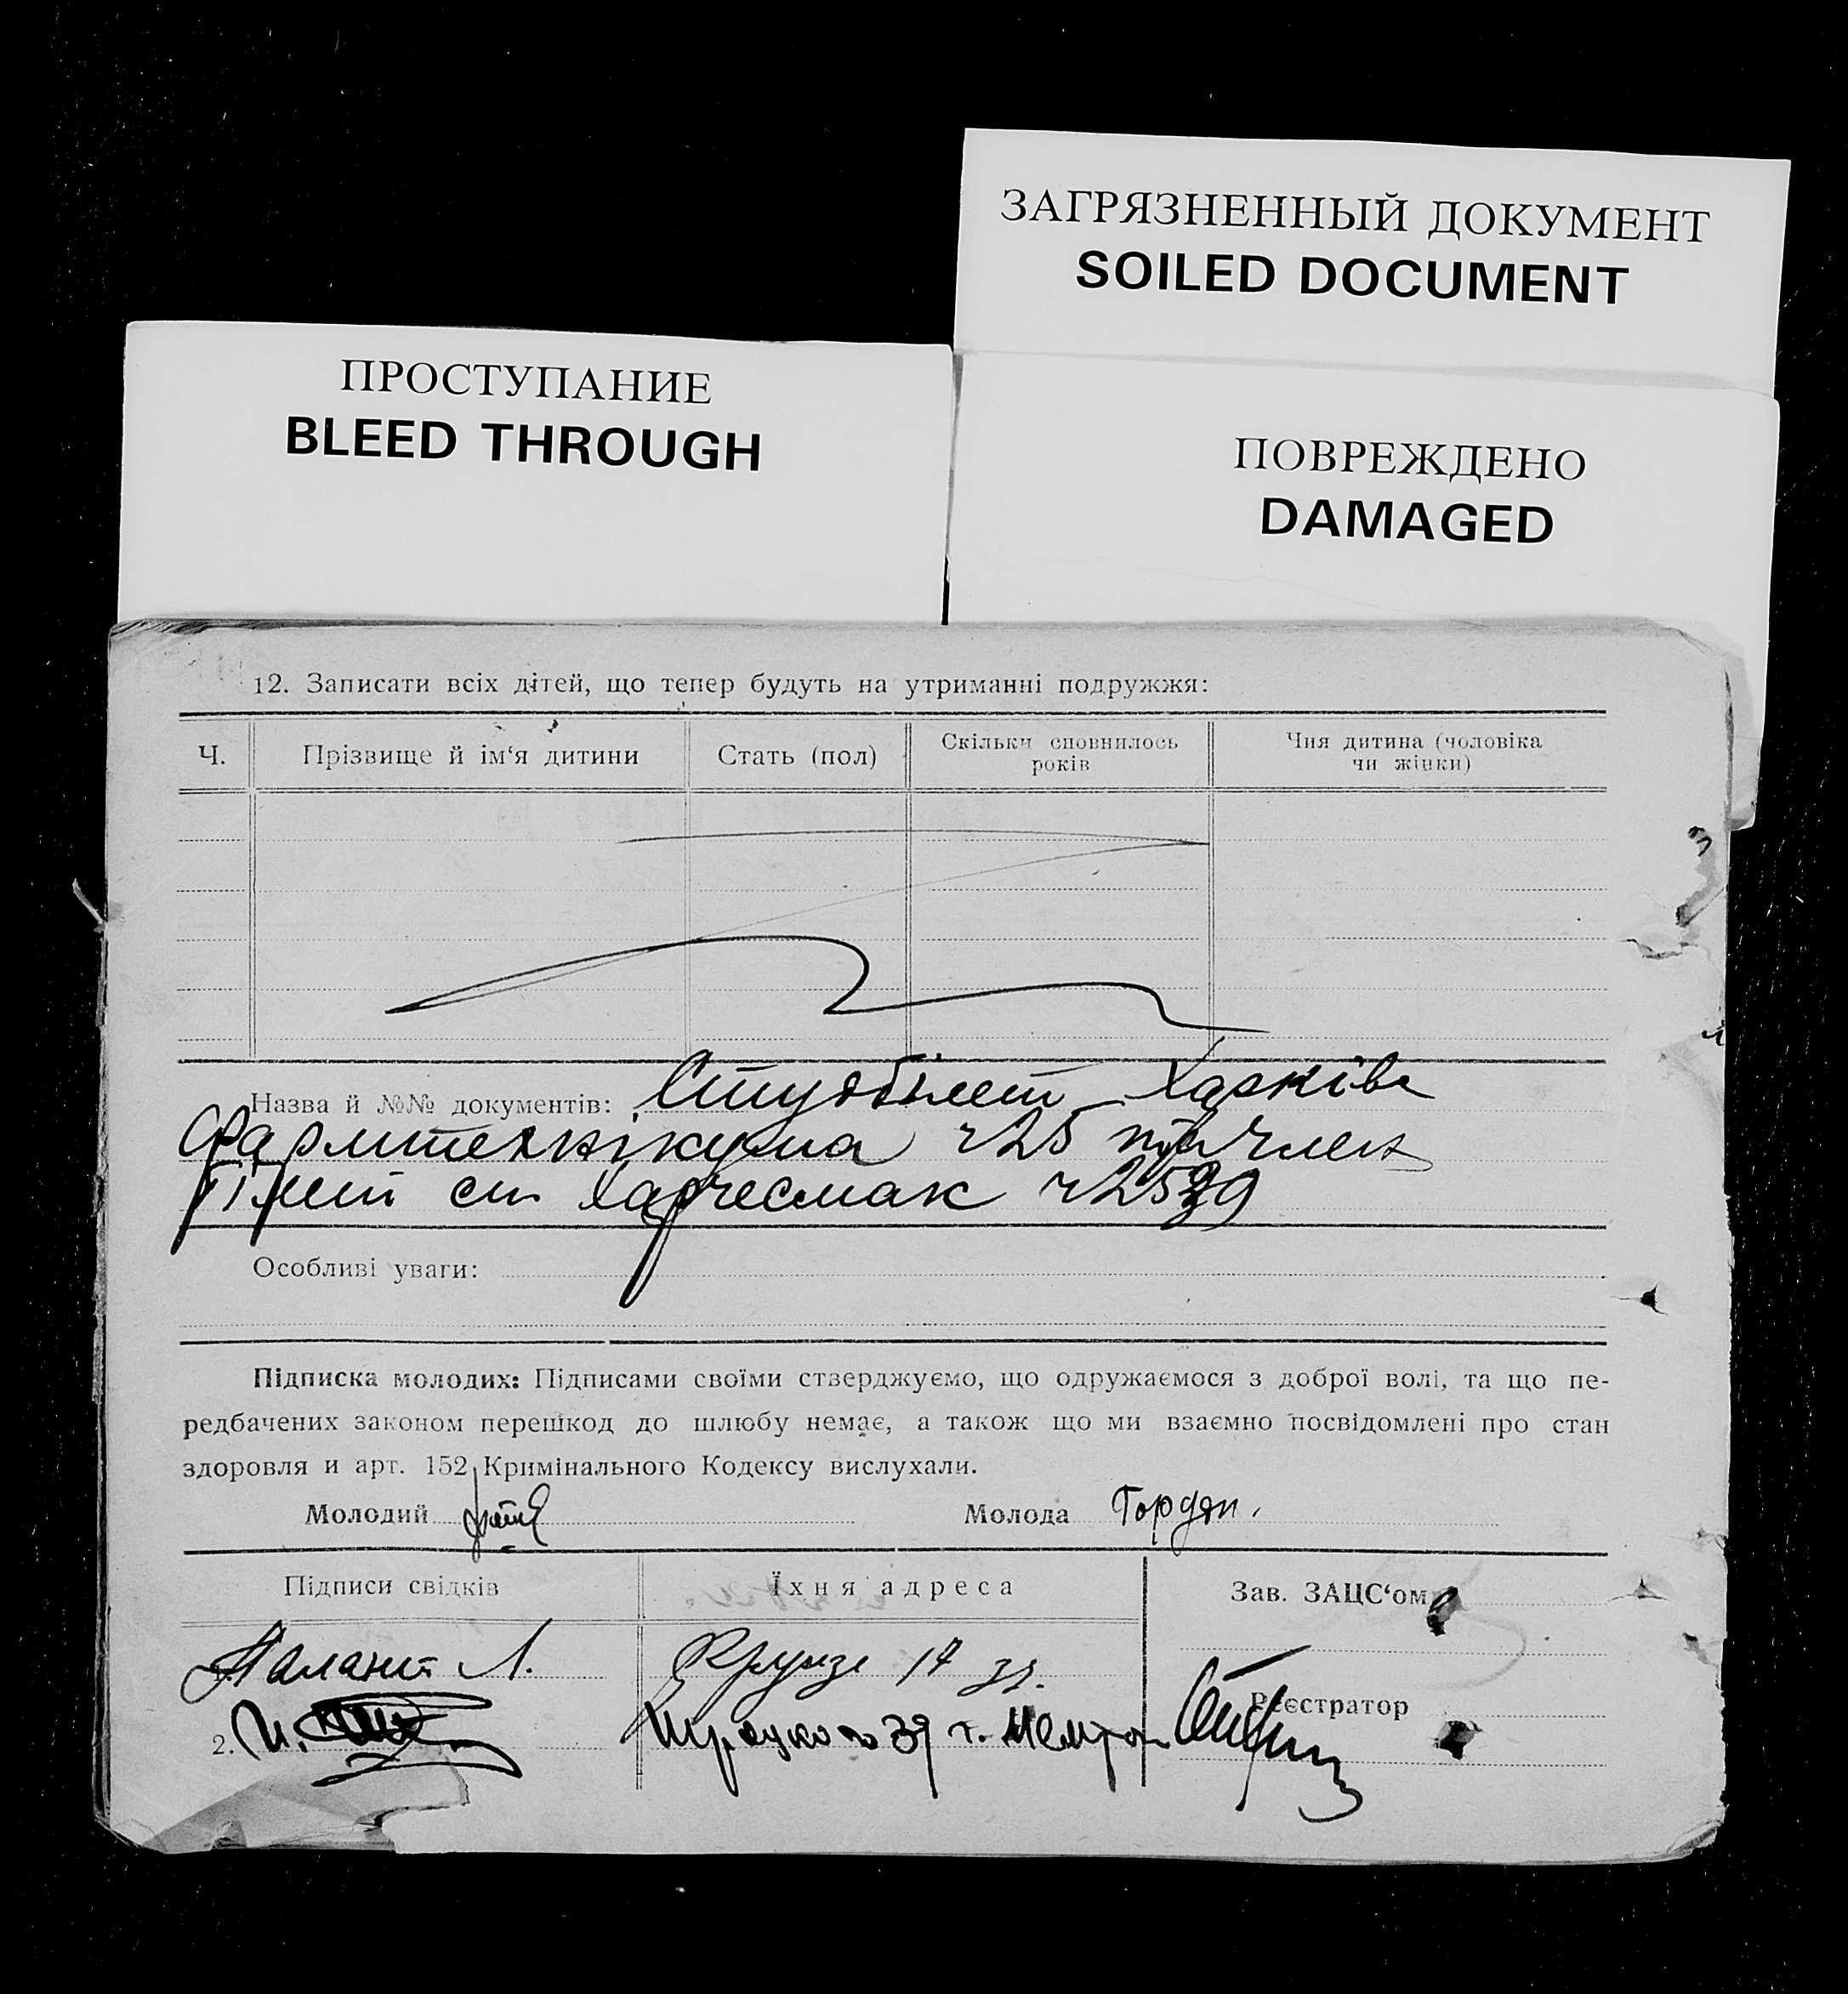 ЗАГРЯЗНЕННЫЙ ДОКУМЕНТ
SOILED DOCUMENT
ПРОСТУПАНИЕ
BLEED THROUGH
ПОВРЕЖДЕНО
DAMAGED
12. Записати всіх дітей, що тепер будуть на утриманні подружжя:
Ч. Прізвище й ім‘я дитини Стать (пол) Скільки сповнилось років Чия дитина (чоловіка чи жінки)
Назва й №№ документів: Студбілет Харків
Фармтехнікума ч 25 член
білет сп. Харчесмак ч 2539
Особливі уваги:
Підписка молодих: Підписами своїми стверджуємо, що одружаємося з доброї волі, та що пе-
редбачених законом перешкод до шлюбу немає, а також що ми взаємно посвідомлені про стан
здоровля и арт. 152 Кримінального Кодексу вислухали.
Молодий Молода Гордон.
Підписи свідків Їхня адреса Зав. ЗАЦС‘ом
Палант Л. Фрунзе 17
Реєстратор
2. И. 39 т.